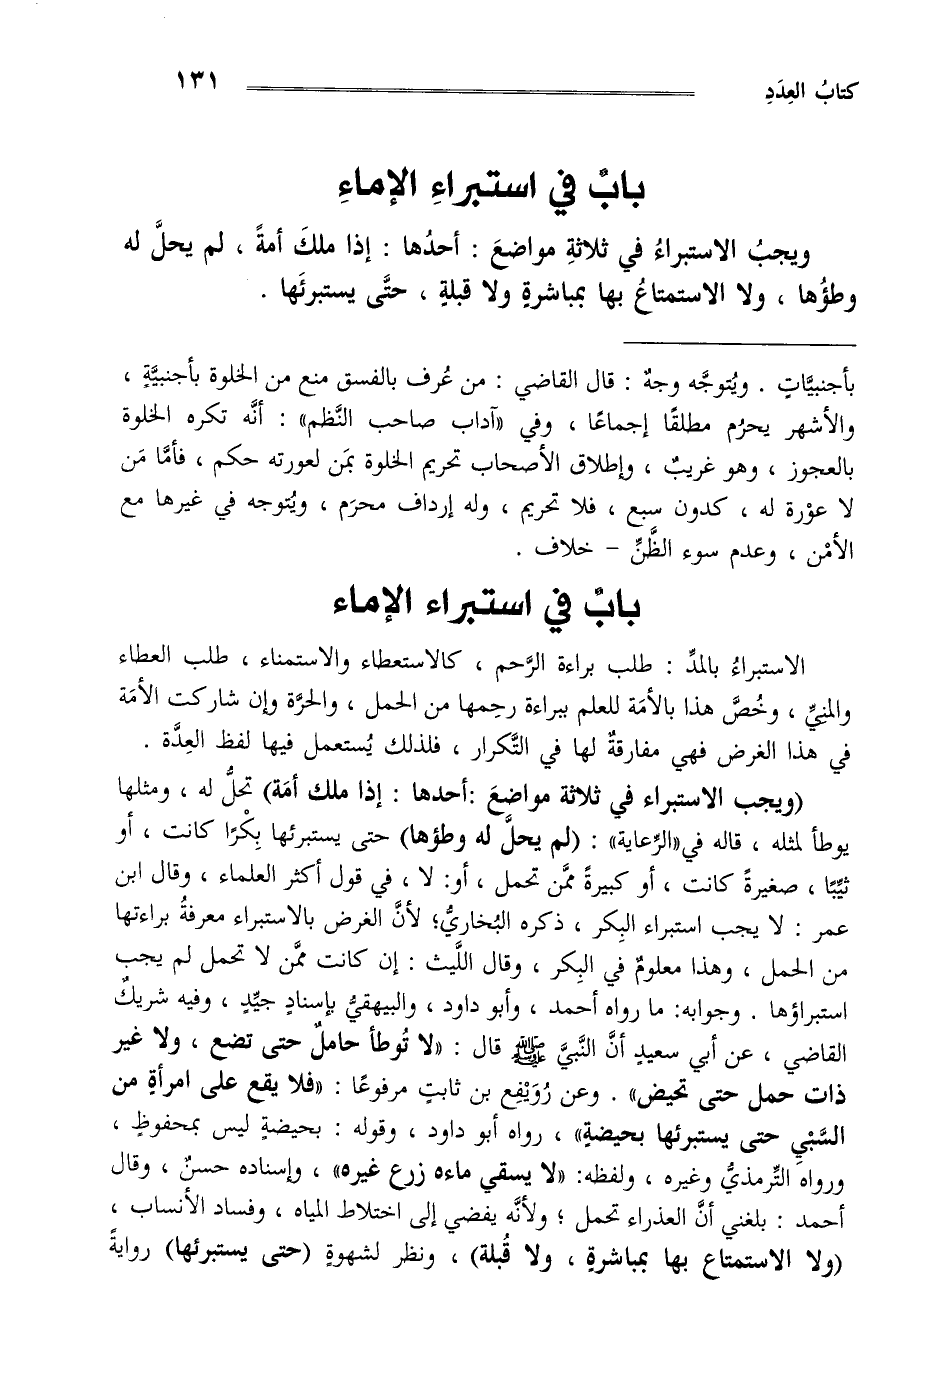 كتابُ العِدَدِ ١٣١
بابٌ في استبراءِ الإماءِ
ويجبُ الاستبراءُ في ثلاثةِ مواضعَ : أحدُها : إذا ملكَ أمةً ، لم يحلَّ له
وطؤُها ، ولا الاستمتاعُ بها بمباشرةٍ ولا قبلةٍ ، حتَّى يستبرئَها .
بأجنبيَّاتٍ . ويُتوجَّه وجهٌ : قال القاضي : من عُرف بالفسق منع من الخلوة بأجنبيَّةٍ ،
والأشهر يحرُم مطلقًا إجماعًا ، وفي «آداب صاحب النَّظم» : أنَّه تكره الخلوة
بالعجوز ، وهو غريبٌ ، وإطلاق الأصحاب تحريم الخلوة بمَن لعورته حكم ، فأمَّا مَن
لا عوْرة له ، كدون سبع ، فلا تحريم ، وله إرداف محرَم ، ويُتوجه في غيرها مع
الأمْن ، وعدم سوء الظَّنِّ – خلاف .
بابٌ في استبراء الإماء
الاستبراءُ بالمدِّ : طلب براءة الرَّحم ، كالاستعطاء والاستمناء ، طلب العطاء
والمنيِّ ، وخُصَّ هذا بالأمَة للعلم ببراءة رحِمها من الحمل ، والحرَّة وإن شاركت الأمَة
في هذا الغرض فهي مفارقةٌ لها في التَّكرار ، فلذلك يُستعمل فيها لفظ العِدَّة .
(ويجب الاستبراء في ثلاثة مواضعَ :أحدها : إذا ملك أمَة) تحلُّ له ، ومثلها
يوطأ لمثله ، قاله في«الرِّعاية» : (لم يحلَّ له وطؤها) حتى يستبرئها بِكْرًا كانت ، أو
ثيِّبًا ، صغيرةً كانت ، أو كبيرةً ممَّن تحمل ، أو: لا ، في قول أكثر العلماء ، وقال ابن
عمر : لا يجب استبراء البِكر ، ذكره البُخاريُّ؛ لأنَّ الغرض بالاستبراء معرفةُ براءتها
من الحمل ، وهذا معلومٌ في البِكر ، وقال اللَّيث : إن كانت ممَّن لا تحمل لم يجب
استبراؤها . وجوابه: ما رواه أحمد ، وأبو داود ، والبيهقيُّ بإسنادٍ جيِّدٍ ، وفيه شريكٌ
القاضي ، عن أبي سعيدٍ أنَّ النَّبيَّ ﷺ قال : «لا تُوطأ حاملٌ حتى تضع ، ولا غير
ذات حمل حتى تحيض» . وعن رُوَيْفِع بن ثابتٍ مرفوعًا : «فلا يقع على امرأةٍ من
السَّبْيِ حتى يستبرئها بحيضةٍ» ، رواه أبو داود ، وقوله : بحيضةٍ ليس بمحفوظٍ ،
ورواه التِّرمذيُّ وغيره ، ولفظه: «لا يسقي ماءه زرع غيره» ، وإسناده حسنٌ ، وقال
أحمد : بلغني أنَّ العذراء تحمل ؛ ولأنَّه يفضي إلى اختلاط المياه ، وفساد الأنساب ،
(ولا الاستمتاع بها بمباشرةٍ ، ولا قُبلة) ، ونظر لشهوةٍ (حتى يستبرئها) روايةً